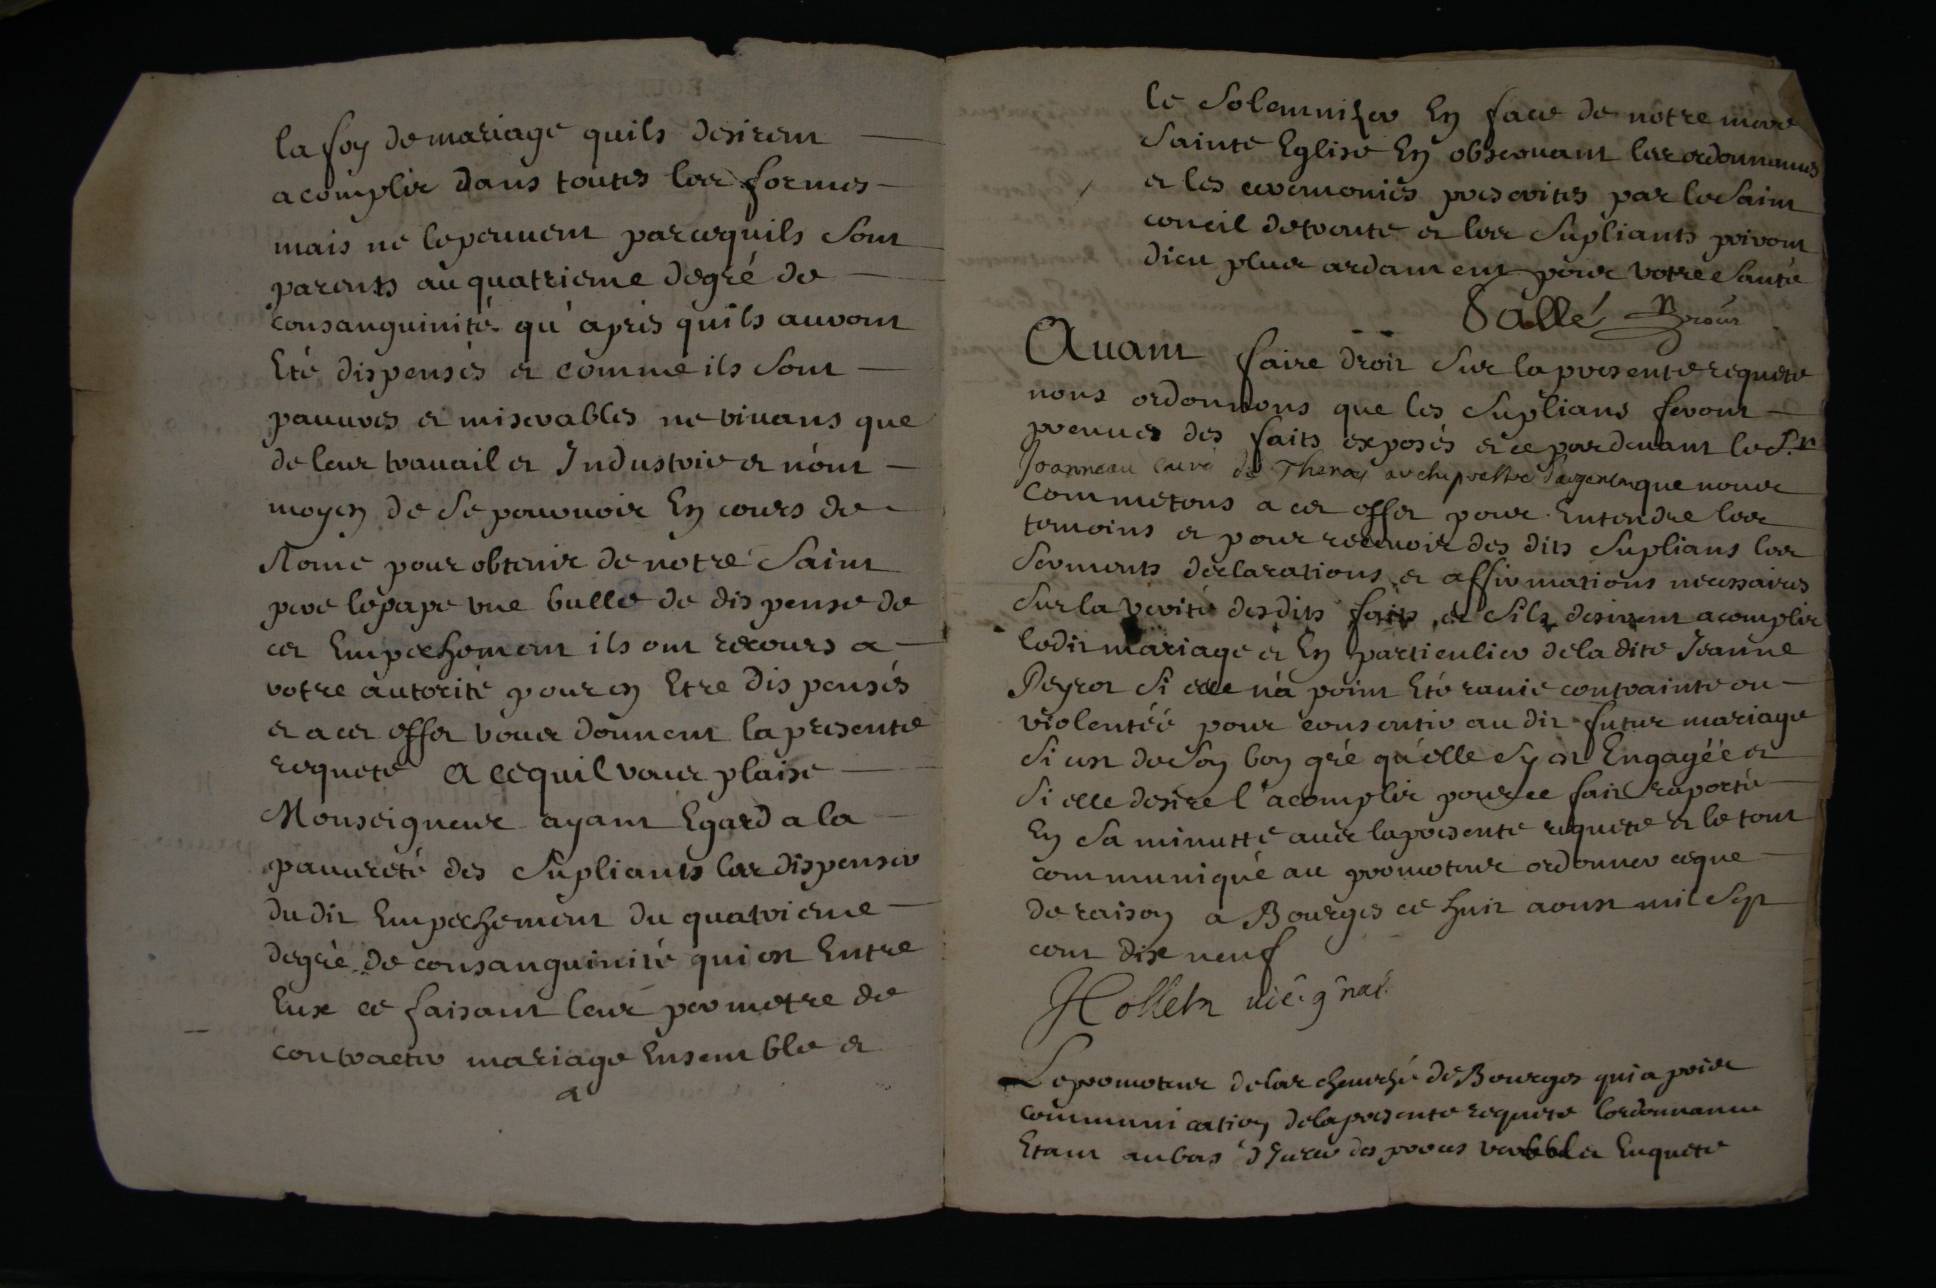 la foy de mariage quils desirent
acomplir dans toutes les formes
mais ne le peuuent parcequils sont
parents au quatrieme degré de
consanguinité qu'apres quils auront
Eté dispensés et comme ils sont
pauures et miserables ne viuans que
de leur trauail et Industrie et n'ont
moyen de se pouruoir En cours de
Rome pour obtenir de notre Saint
pere le pape vne bulle de dispense de
cet Empechement ils ont recours a
votre autorité pour en Etre dispensés
et a cet effet vous donnent la presente
requete a ce quil vous plaise
Monseigneur ayant Egard a la
pauureté des Supliants les dispenser
du dit Empechement du quatrieme
degré de consanguinité qui est Entre
Eux ce faisant leur permetre de
contracter mariage Ensemble et
le solemnizer En face de notre mere
Sainte Eglise En obseruant les ordonnances
et les ceremonies prescrites par le Saint
concil de trente et les Supliants priront
dieu plus ardament pour votre santé
Sallé
Auant faire droit sur la presente requete
nous ordonnons que les suplians feront
preuues des faits exposés et ce pardeuant le S.r
Joanneau curé de Thenay archiprestre d'argenton que nous
commetons a cet effet pour Entendre les
temoins et pour receuoir des dits suplians les
serments declarations et affirmations necessaires
sur la verité desdits faits et sils desirent acomplir
ledit mariage et En particulier de la dite Jeanne
Peyrot si elle n'a point Eté rauie contrainte ou
violentéé pour consentir au dit futur mariage
si cest de son bon gré qu'elle sy est Engagéé et
si elle desire l'acomplir pour ce fait raporté
En sa minutte auec la presente requete et le tout
communiqué au promoteur ordonner ce que
de raison a Bourges ce huit aoust mil sept
cent dix neuf
vic. g̃nal.
Le promoteur de larcheuesché de Bourges qui a pris
communication de la presente requete lordonnance
Etant au bas des proces verbbl et Enquete